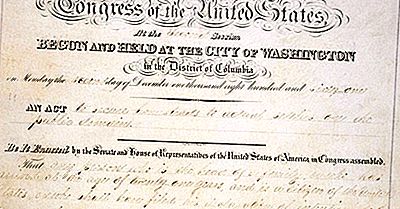 Congress of the United States,
At the second Session
BEGUN AND HELD AT THE CITY OF WASHINGTON
in the District of Columbia
on Monday the second day of December one thousand eight hundred and sixty-one
AN ACT to secure homesteads to actual settlers on the
public domain.
Be It Enacted by the Senate and House of Representatives of the United States of America in Congress assembled,
That any person who is the head of a family, or who has
arrived at the age of twenty one years, and is a citizen of the United
States, or who shall have filed his declaration of intention